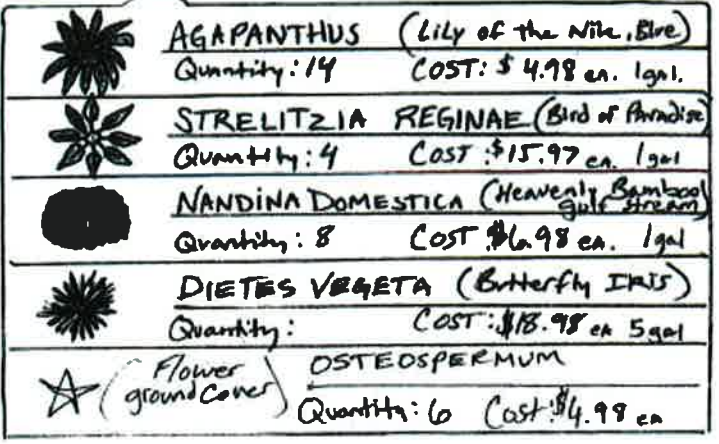 AGAPANTHUS (Lily of the Nile, Blue)
Quantity: 14 COST: $4.98 ea. 1gal.
STRELITZIA REGINAE (Bird of Paradise)
Quantity: 4 COST: $15.97 ea. 1gal
NANDINA DOMESTICA (Heavenly Bamboo
gulf stream)
Quantity: 8 COST $6.98 ea. 1gal
DIETES VEGETA (Butterfly IRIS)
Quantity: COST: $18.98 ea 5gal
(Flower
ground Cover)
OSTEOSPERMUM
Quantity: 6 Cost: $4.98 ea